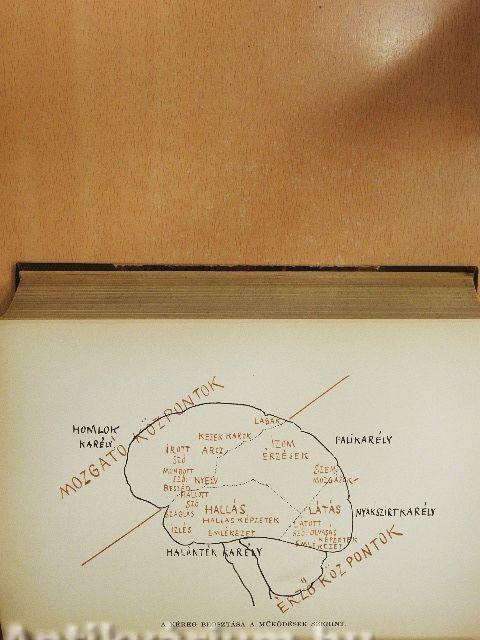 MOZGATÓ KÖZPONTOK
HOMLOK
KARÉLY
LÁBAK
KEZEK KAROK
ARCZ
IZOM
ÉRZÉSEK
FALIKARÉLY
ÍROTT
SZÓ
MONDOTT
SZÓ
BESZÉD
NYELV
SZEM
MOZGÁSOK
HALLOTT
SZÓ
SZAGLÁS
ÍZLÉS
HALLÁS
HALLÁS KÉPZETEK
EMLÉKEZET
LÁTÁS
LÁTOTT
SZÓ OLVASÁS
KÉPZETEK
EMLÉKEZET
NYAKSZIRTKARÉLY
HALÁNTÉK KARÉLY
ÉRZŐ KÖZPONTOK
A KÉREG BEOSZTÁSA A MŰKÖDÉSEK SZERINT.